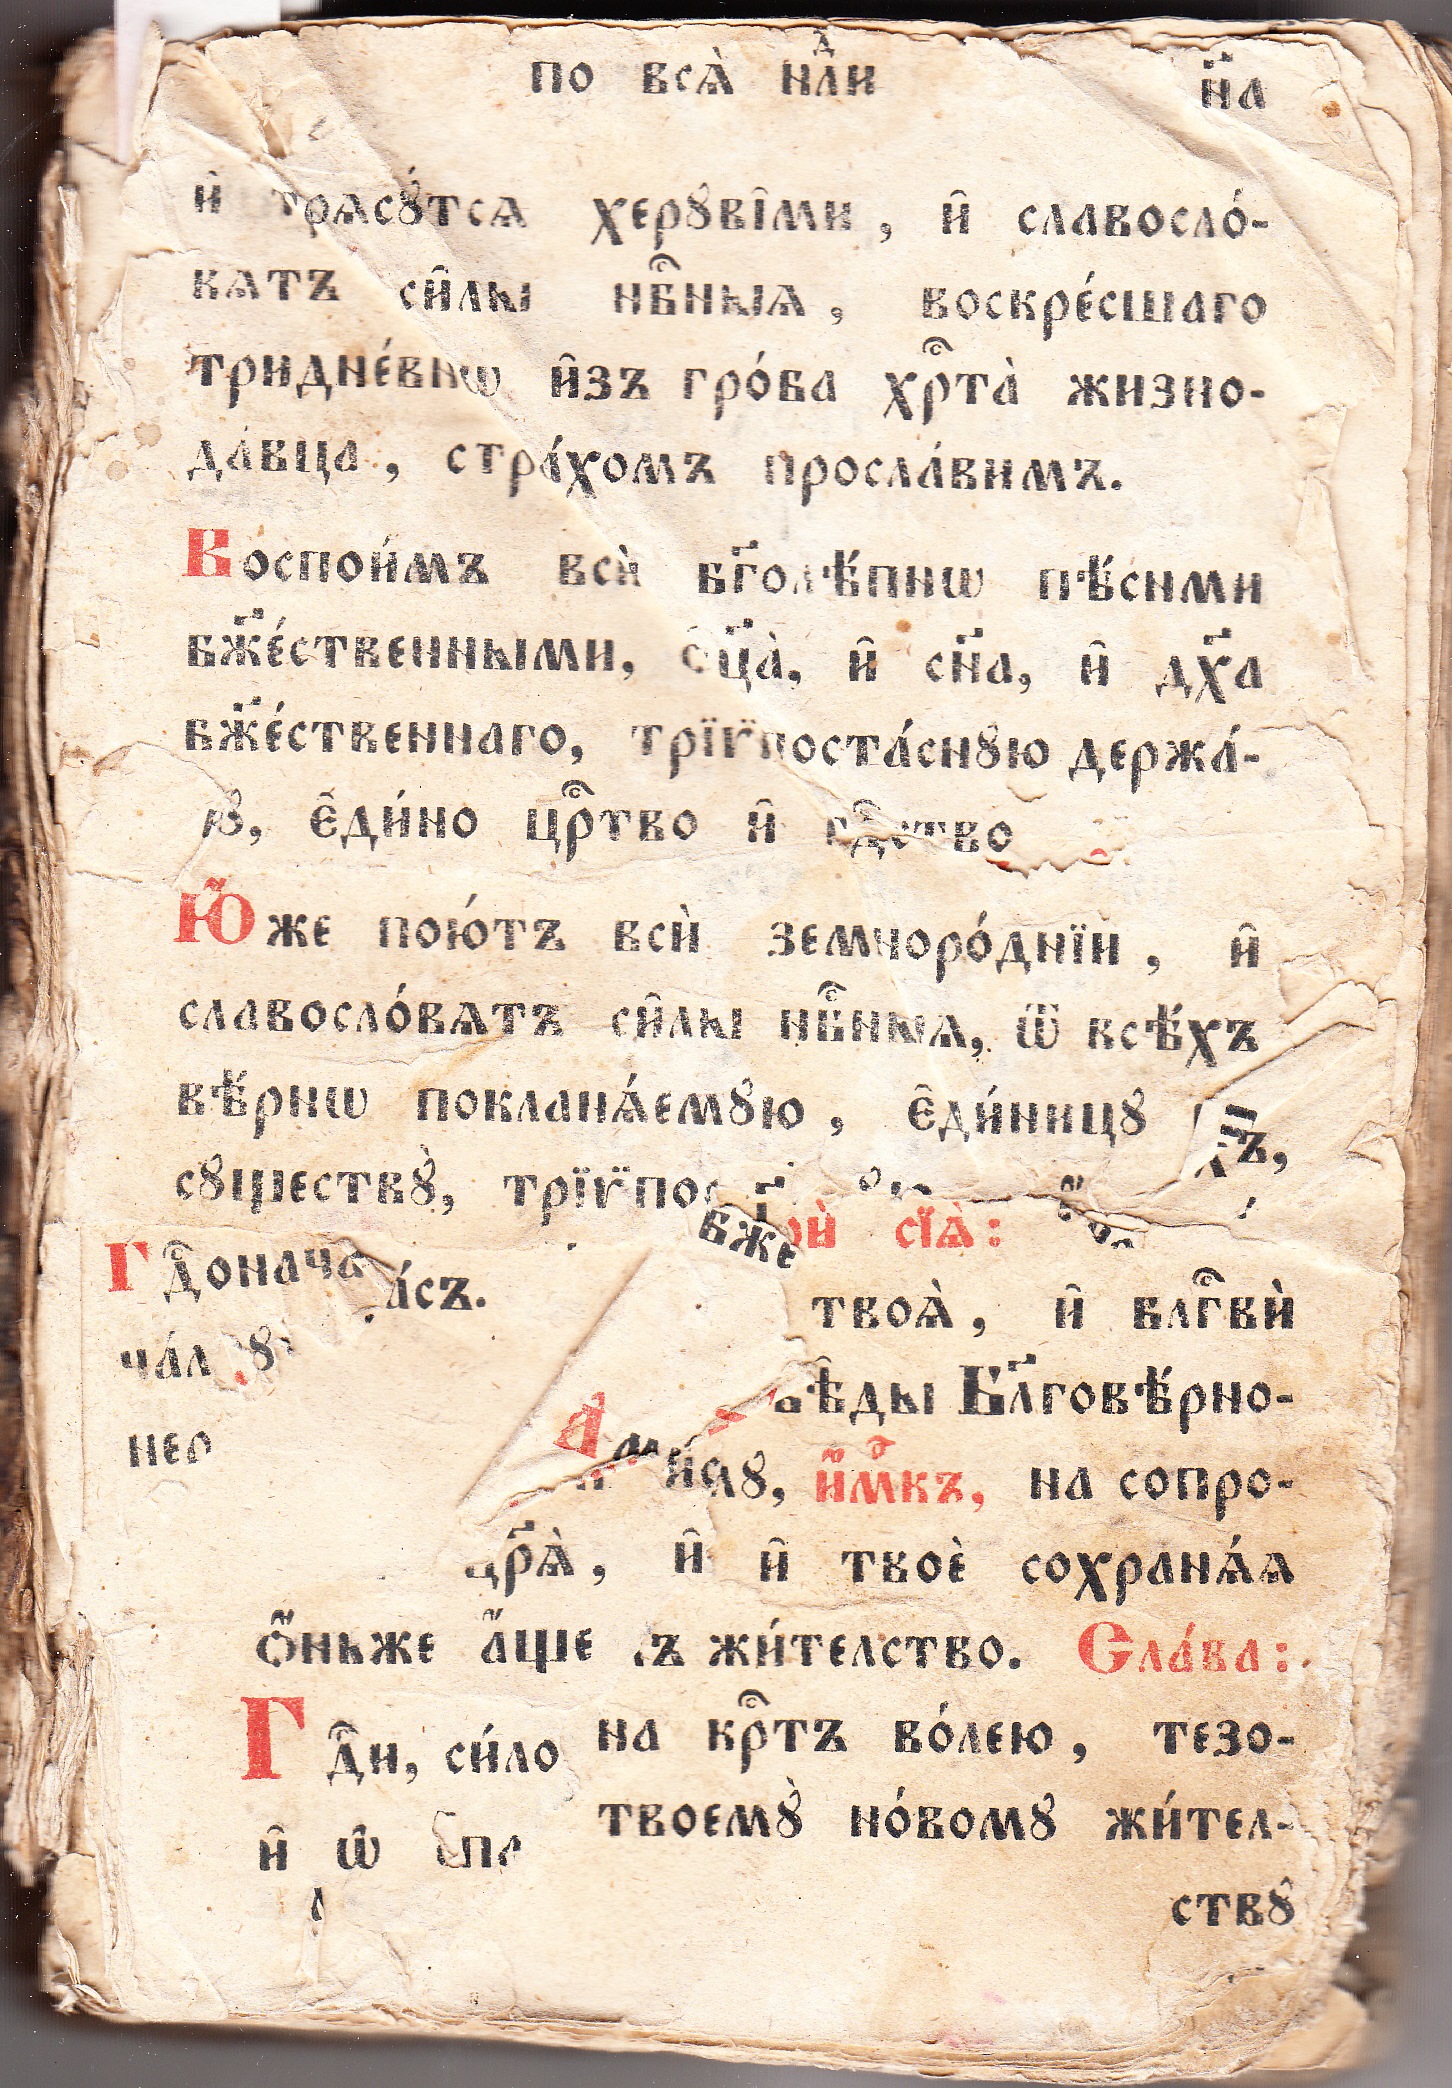 по всѧ̀ нл҃и н҃а
и҆ трѧсꙋ́тсѧ херꙋві̑ми, и҆ славосло́-
вѧтъ си̑лы нб҇ныѧ, воскре́сшаго
тридне́внѡ и҆зъ гро́ба хр҇та̀ жизно-
да́вца, стра́хомъ просла́вимъ.
Воспои́мъ всѝ бг҃олѣ́пнѡ пѣ́сньми
бж҃е́ственными, ѻ҆ц҃а̀, и҆ сн҃а, и҆ дх҃а
бж҃е́ственнаго, трїѵ̈поста́снꙋю держа́-
є҆ди́но цр҇тво и҆ гд҇ство
Ю҆́же пою́тъ всѝ земноро́днїи, и҆
славосло́вѧтъ си̑лы нб҇ныѧ, ѿ всѣ́хъ
вѣ́рнѡ покланѧ́емꙋю, є҆ди́ницꙋ
сꙋществꙋ̀, трїѵ̈пос
бже сїѧ̀:
Гд҇онача а́съ.
твоѧ̀, и҆ блг҇вѝ
ча́л
бѣ̑ды Бл҃говѣ́рно-
нео
и҆́м҃къ, на сопро-
цр҃ѧ̀, и҆ и҆ твоѐ сохранѧ́ѧ
Ѻ҆́ньже а҆́ще жи́телство. Сла́ва:
Гд҇и, си́ло на кр҇тъ во́лею, тезо-
и҆ ѡ҆ твоемꙋ̀ но́вомꙋ жи́тел-
ствꙋ̑